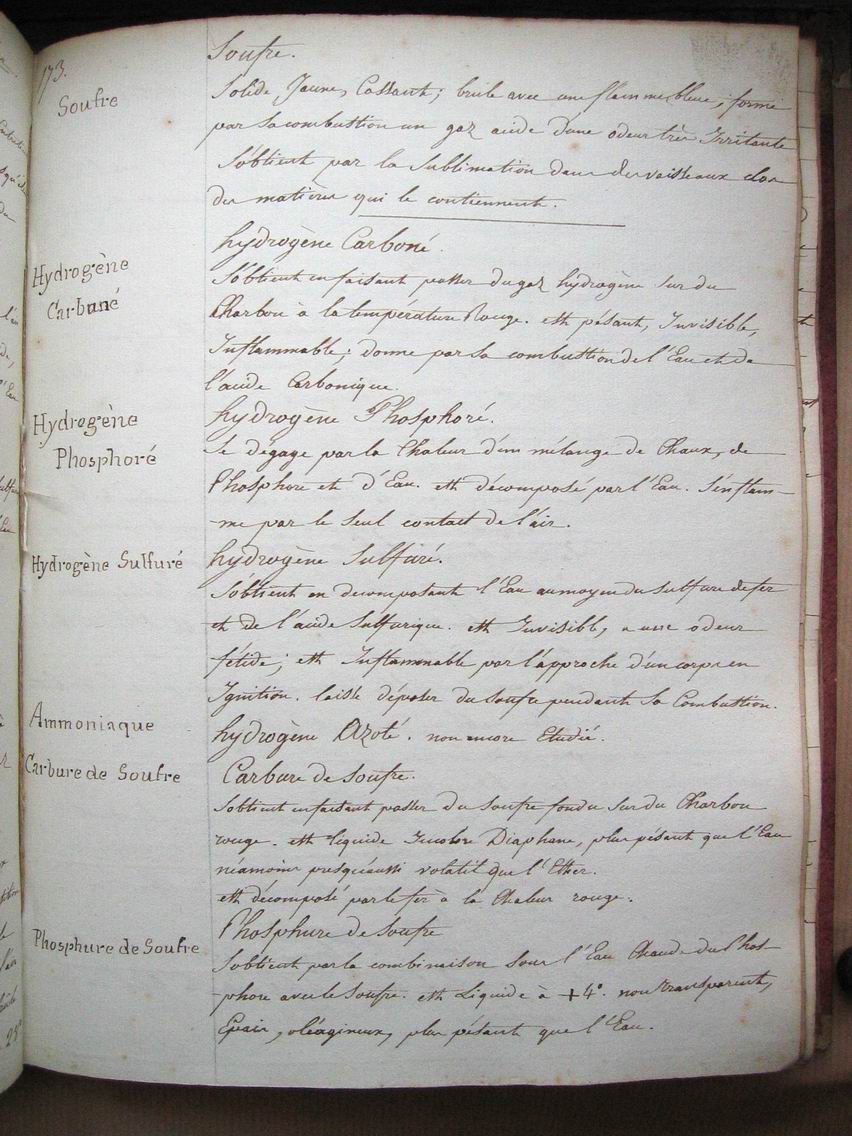 173.
Soufre.
Soufre
Solide Jaune, Cassant; brule avec une flamme bleue; forme
par sa combustion un gaz acide d'une odeur très Irritante
S'obtient par la Sublimation dans des vaisseaux clos
des matières qui le contiennent.
Hydrogène
Carburé
hydrogène Carboné.
S'obtient en faisant passer du gaz hydrogène sur du
Charbon à la température Rouge. est pésant, Invisible,
Inflammable; donne par sa combustion de l'Eau et de
l'acide Carbonique.
Hydrogène
Phosphoré
hydrogène Phosphoré.
Se dégage par la Chaleur d'un mélange de Chaux, de
Phosphore et d'Eau. est décomposé par l'Eau. S'enflam-
-me par le Seul contact de l'air.
Hydrogène Sulfuré
hydrogène Sulfuré.
S'obtient en decomposant l'Eau au moyen du Sulfure de fer
et de l'acide Sulfurique. est Invisible, a une odeur
fétide; est Inflammable par l'approche d'un corps en
Ignition. laisse déposer du Soufre pendant Sa Combustion.
Ammoniaque
hydrogène Azoté. non encore Etudié.
Carbure de Soufre
Carbure de Soufre.
S'obtient en faisant passer du Soufre fondu Sur du Charbon
rouge. est liquide Incolore Diaphane, plus pésant que l'Eau
néamoins presqu'aussi volatil que l'Ether.
est décomposé par le fer à la Chaleur rouge.
Phosphure de Soufre
Phosphure de Soufre
S'obtient par la combinaison sous l'Eau Chaude du Phos-
-phore avec le Soufre. est Liquide à +4°. non transparent,
Epais, oléagineux, plus pésant que l'Eau.